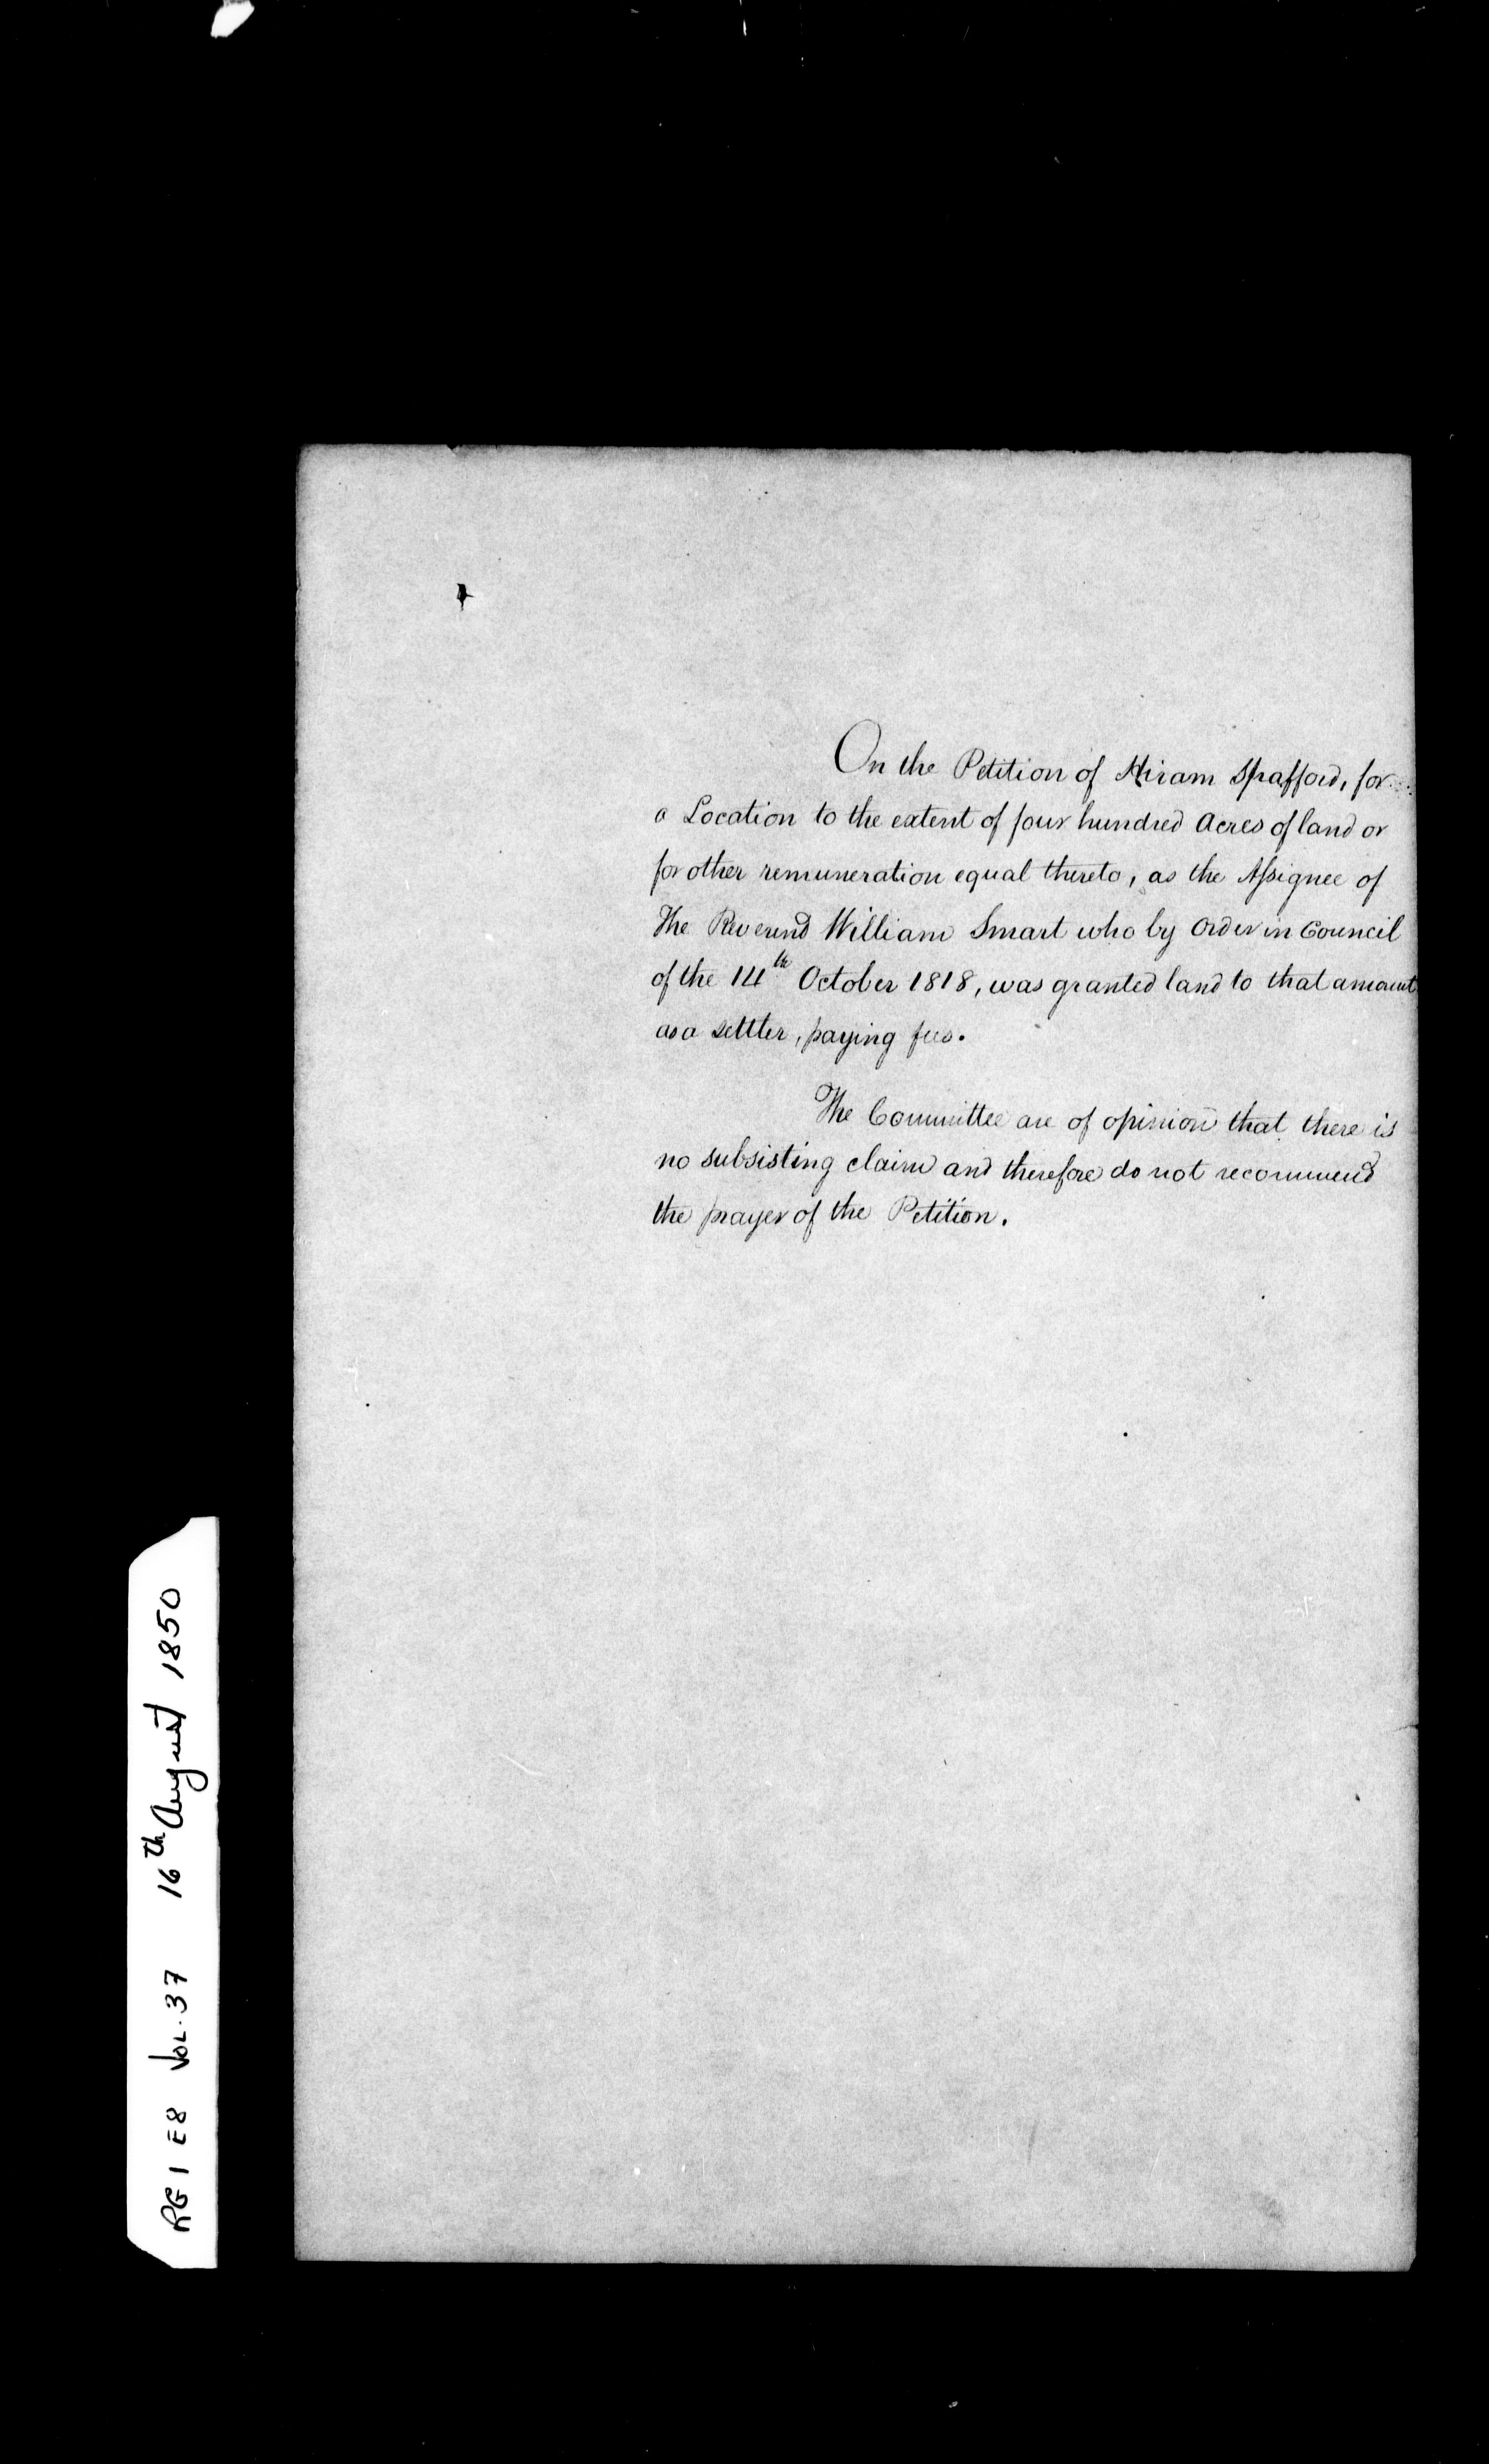 On the Petition of Hiram Spafford, for
a Location to the extent of four hundred Acres of land or
for other remuneration equal thereto, as the Assignee of
The Reverend William Smart who by Order in Council
of the 14th October 1818, was granted land to that amount
as a settler, paying fees.
The Committee are of opinion that there is
no subsisting claim and therefore do not recommend
the prayer of the Petition.
RG 1 E8 VOL. 37 16th August 1850